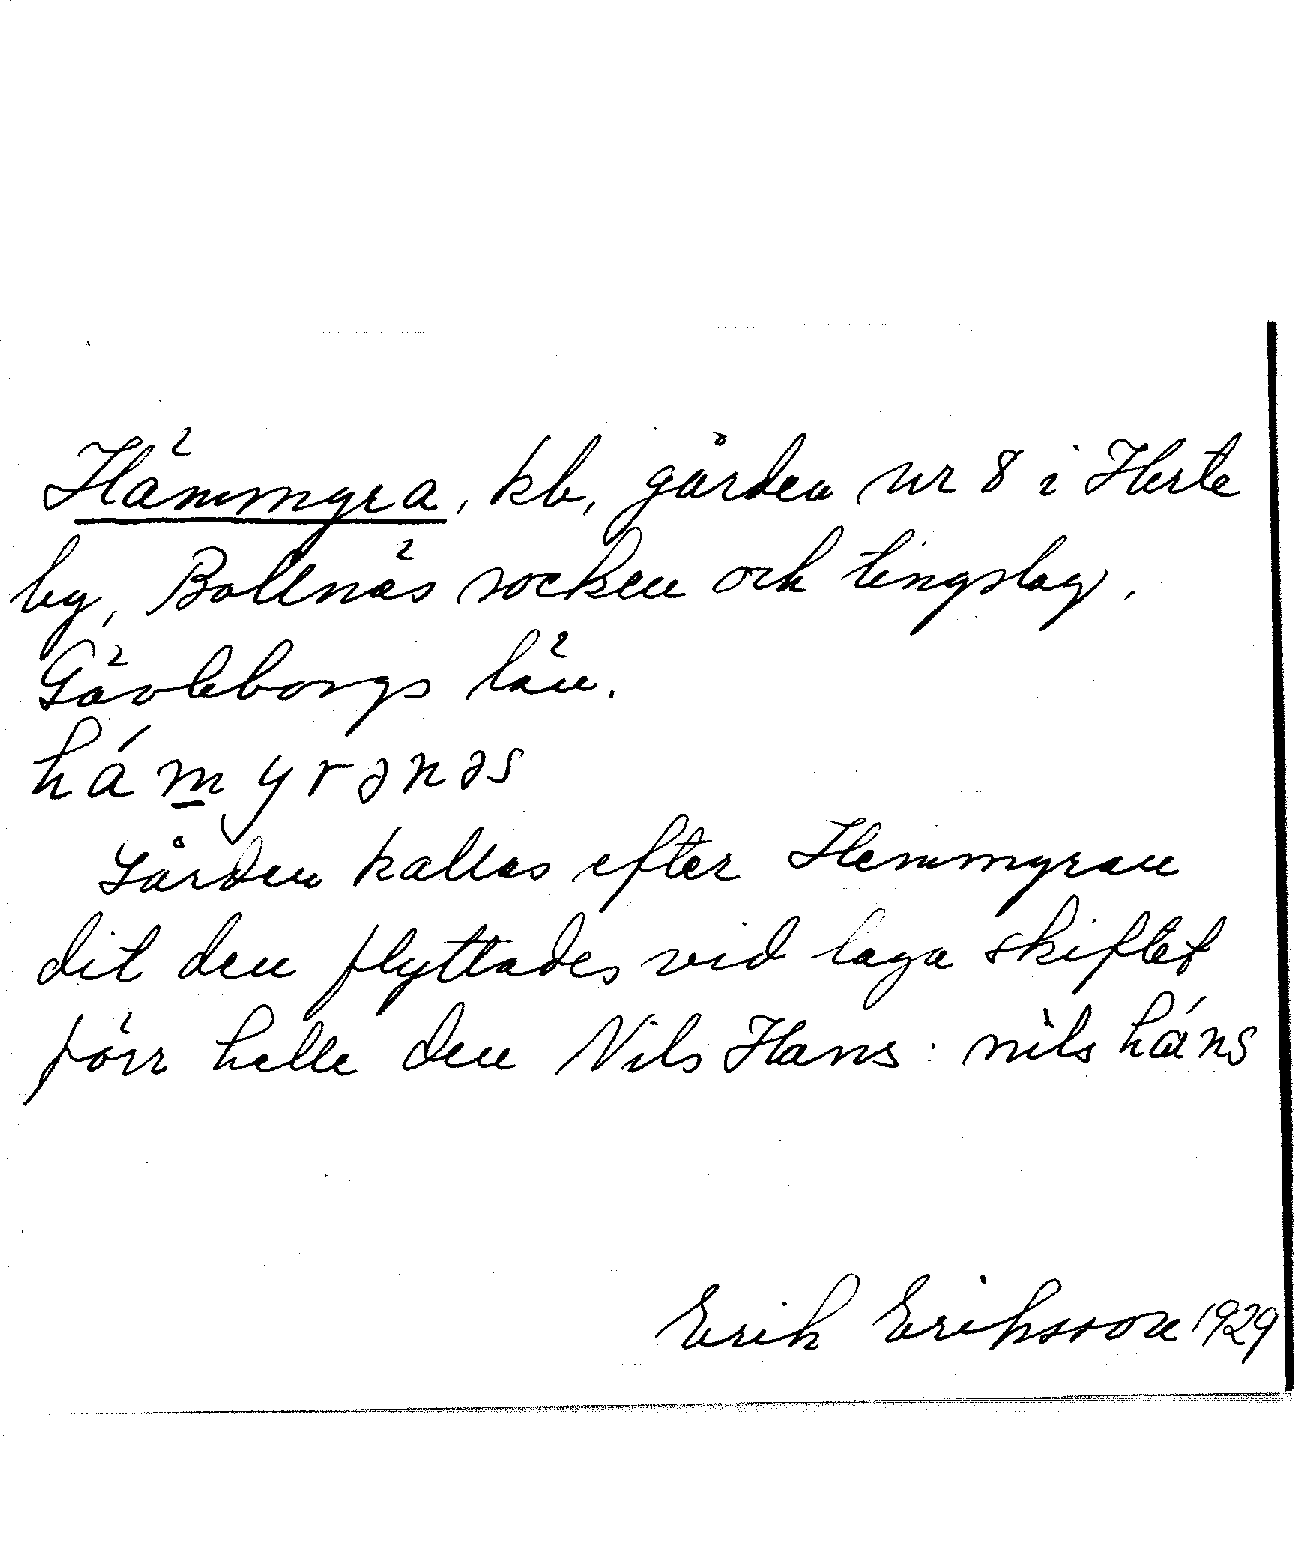 Hämmyra, kb, gården nr 8 i Herte
by, Bollnäs socken och tingslag,
Gävleborgs län.
hámyrənəs
Gården kallas efter Hemmyran
dit den flyttades vid laga skiftet
förr hette den Nils Hans: nils háns
Erik Eriksson 1929